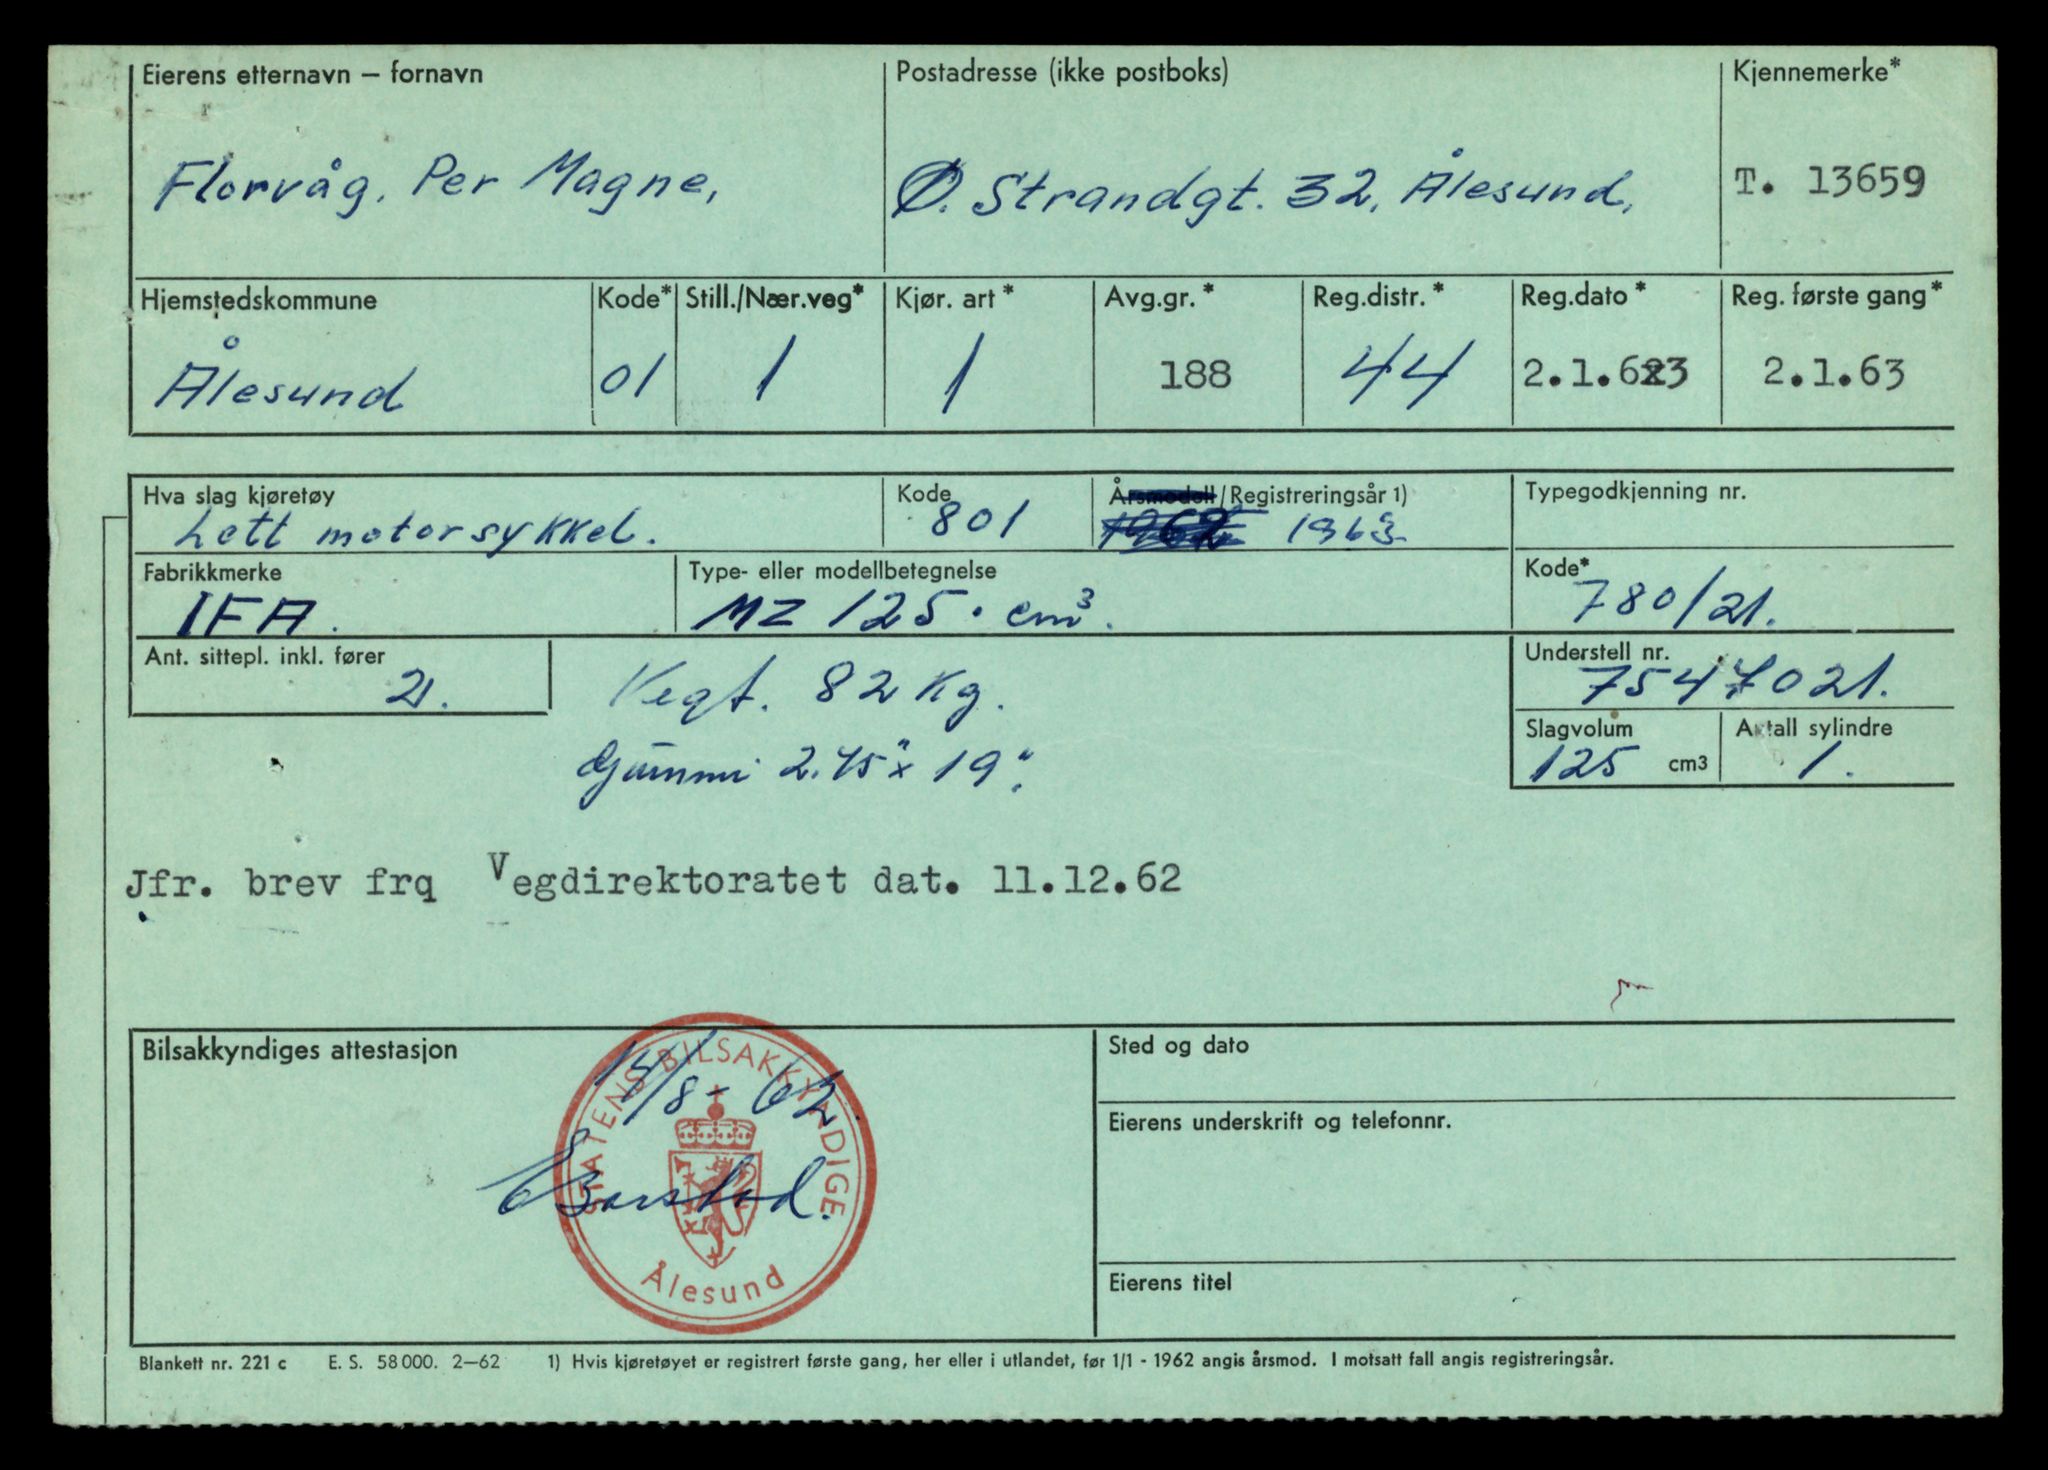 Eierens etternavn – fornavn
Postadresse (ikke postboks)
Kjennemerke*
Florvåg, Per Magne,
Ø. Strandgt. 32, Ålesund,
T. 13659
Hjemstedskommune
Kode*
Still./Nær.veg*
Kjør. art*
Avg.gr.*
Reg.distr.*
Reg.dato*
Reg. første gang*
Ålesund
01
1
1
188
44
2.1.6223
2.1.63
Hva slag kjøretøy
Kode
Årsmodell/Registreringsår 1)
Typegodkjenning nr.
Lett motorsykkel.
801
1962 1963
Fabrikkmerke
Type- eller modellbetegnelse
Kode*
IFA.
MZ 125 cm³.
780/21.
Ant. sittepl. inkl. fører
2.
Understell nr.
7547021.
Vegt. 82 Kg.
Slagvolum
Antall sylindre
Gummi 2.75" x 19".
125 cm3
1.
Jfr. brev frq Vegdirektoratet dat. 11.12.62
Bilsakkyndiges attestasjon
Sted og dato
STATENS BILSAKKYNDIGE
/8-62.
Eierens underskrift og telefonnr.
Ålesund
Eierens titel
Blankett nr. 221 c E. S. 58000. 2–62 1) Hvis kjøretøyet er registrert første gang, her eller i utlandet, før 1/1 - 1962 angis årsmod. I motsatt fall angis registreringsår.